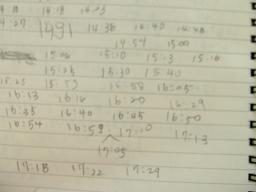 14:18 14:23
14:27 1991 14:36 14:40 14:48
14:54 15:00
15:06 15:10 15:13 15:16
15:25 15:30 15:40
15:53 15:58 16:05
16:13 16:16 16:20 16:29
16:35 16:40 16:45 16:50
16:54 16:59 17:10 17:13
17:05
17:18 17:22 17:29